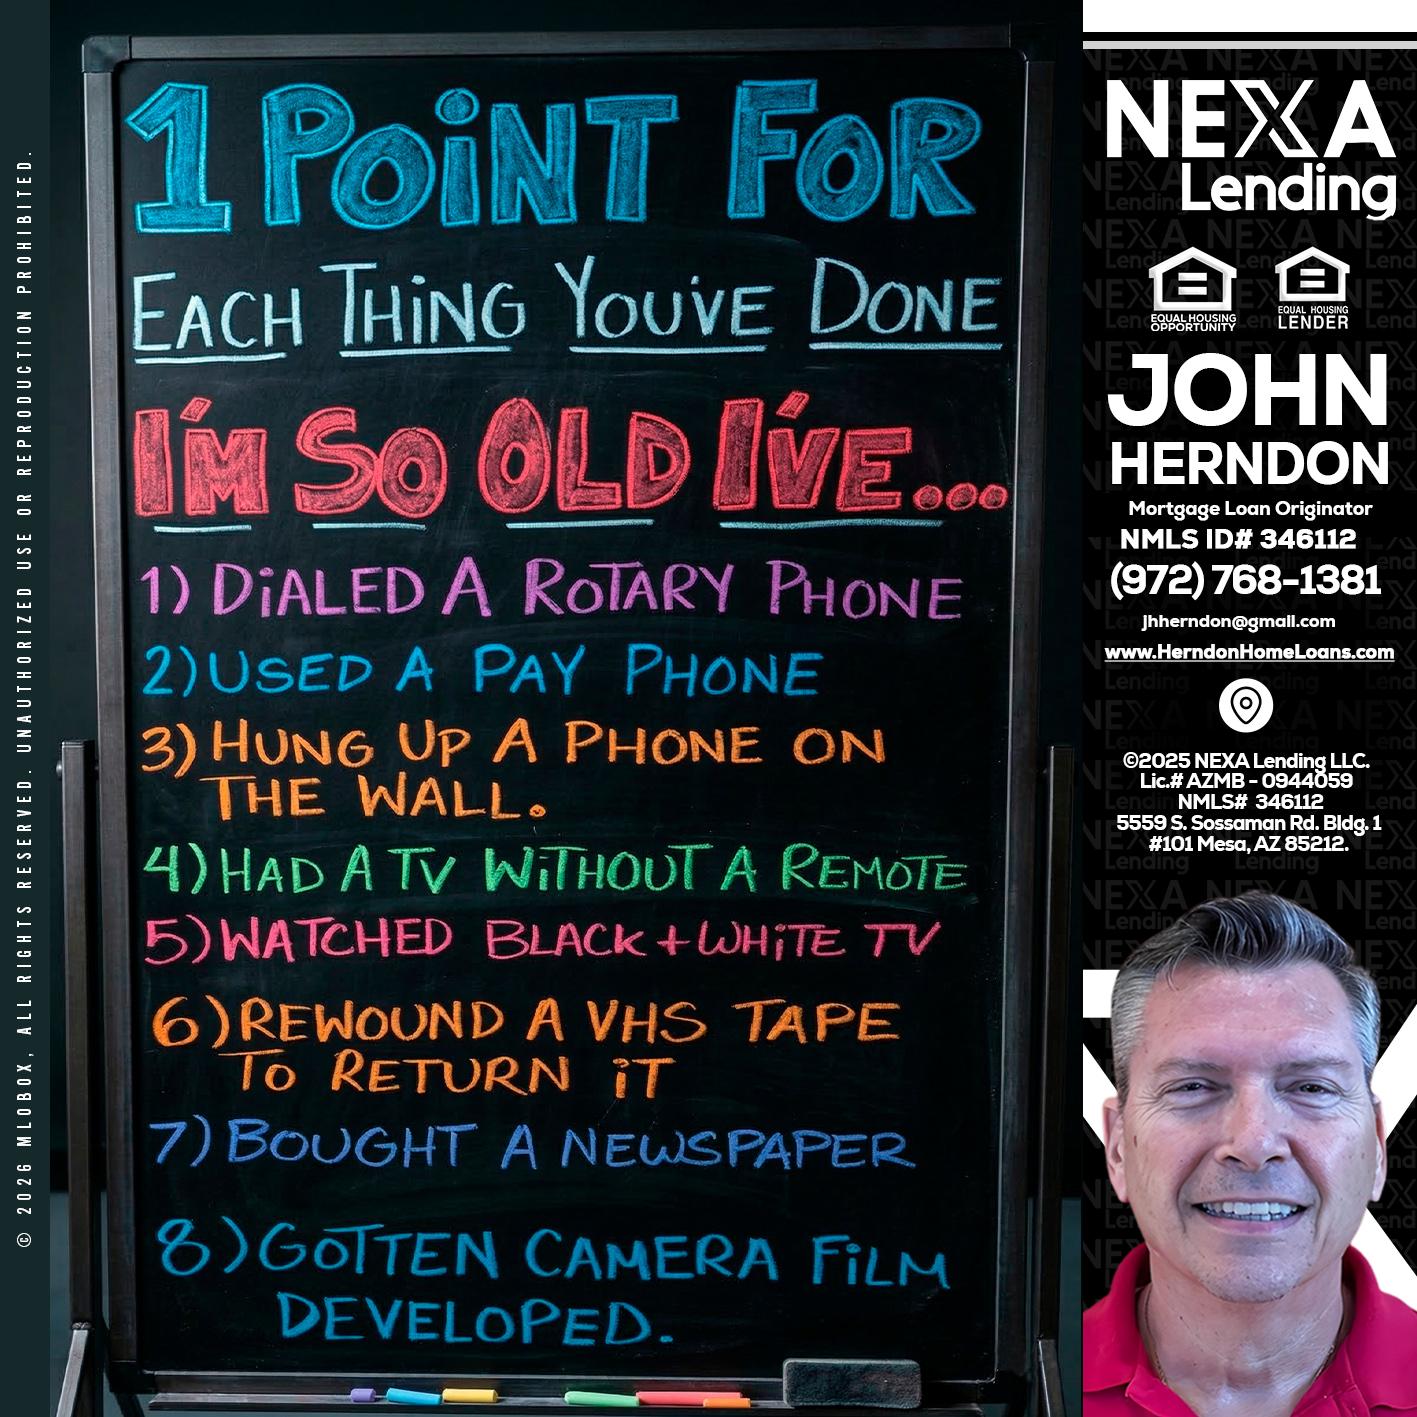 © 2026 MLOBOX, ALL RIGHTS RESERVED. UNAUTHORIZED USE OR REPRODUCTION PROHIBITED.
1 POiNT FOR
EACH THiNG YOU'VE DONE
I'M SO OLD I'VE...
1) DiALED A ROTARY PHONE
2) USED A PAY PHONE
3) HUNG UP A PHONE ON
THE WALL.
4) HAD A TV WiTHOUT A REMOTE
5) WATCHED BLACK + WHiTE TV
6) REWOUND A VHS TAPE
TO RETURN iT
7) BOUGHT A NEWSPAPER
8) GOTTEN CAMERA FiLM
DEVELOPED.
NEXA
Lending
EQUAL HOUSING
OPPORTUNITY
EQUAL HOUSING
LENDER
JOHN
HERNDON
Mortgage Loan Originator
NMLS ID# 346112
(972) 768-1381
jhherndon@gmail.com
www.HerndonHomeLoans.com
©2025 NEXA Lending LLC.
Lic.# AZMB - 0944059
NMLS# 346112
5559 S. Sossaman Rd. Bldg. 1
#101 Mesa, AZ 85212.